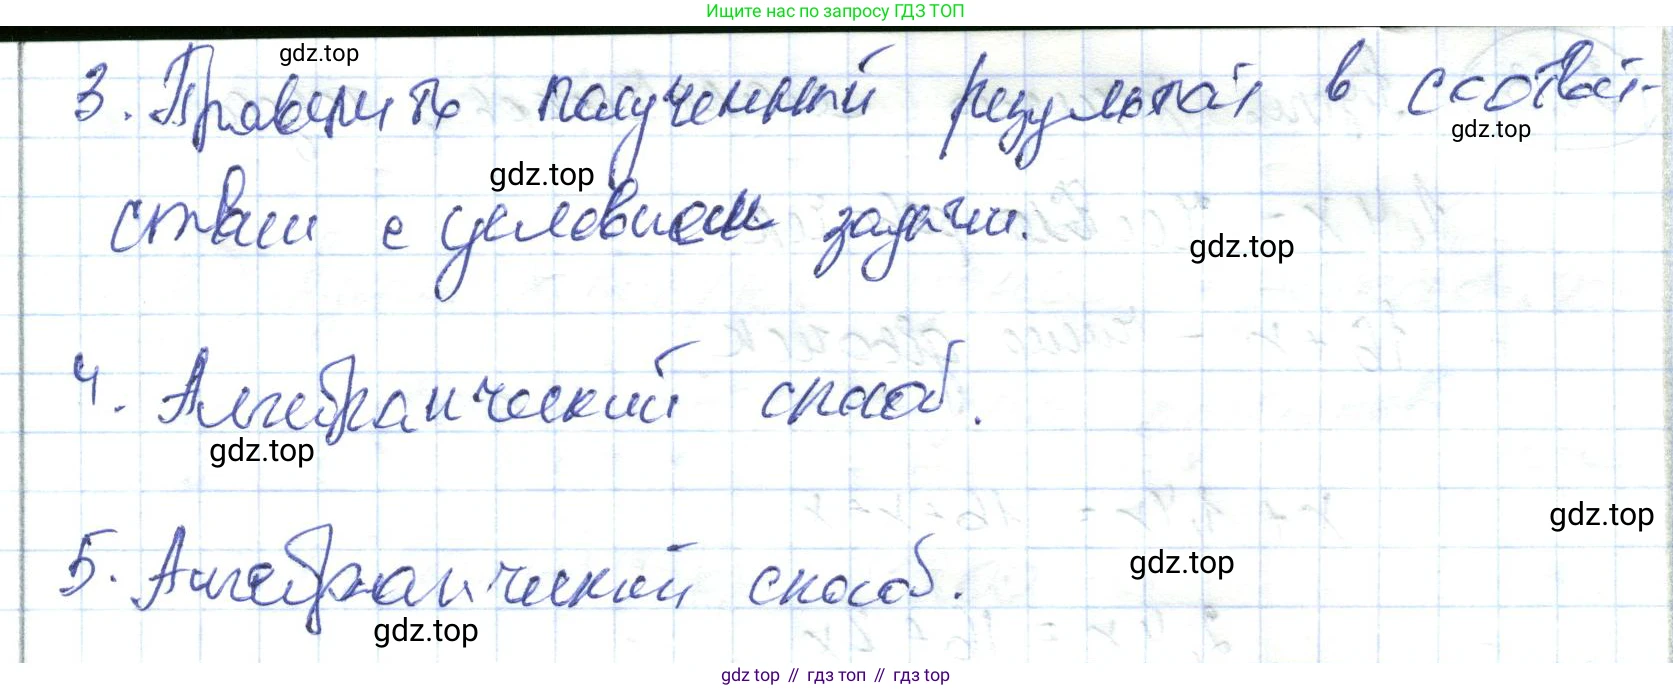 Ищите нас по запросу ГДЗ ТОП
gdz.top
3. Проверить полученный результат в соответ-
gdz.top
gdz.top
ствии с условием задачи.
gdz.top
4. Алгебраический способ.
gdz.top
gdz.top
gdz.top
5. Алгебраический способ.
gdz.top
gdz top // гдз топ // gdz.top